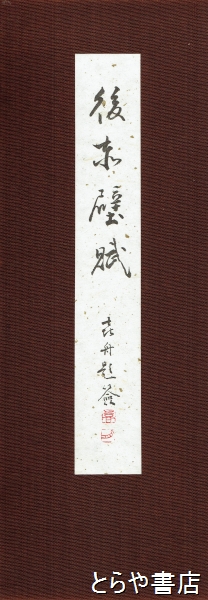 後赤壁賦
春舟題簽
とらや書店